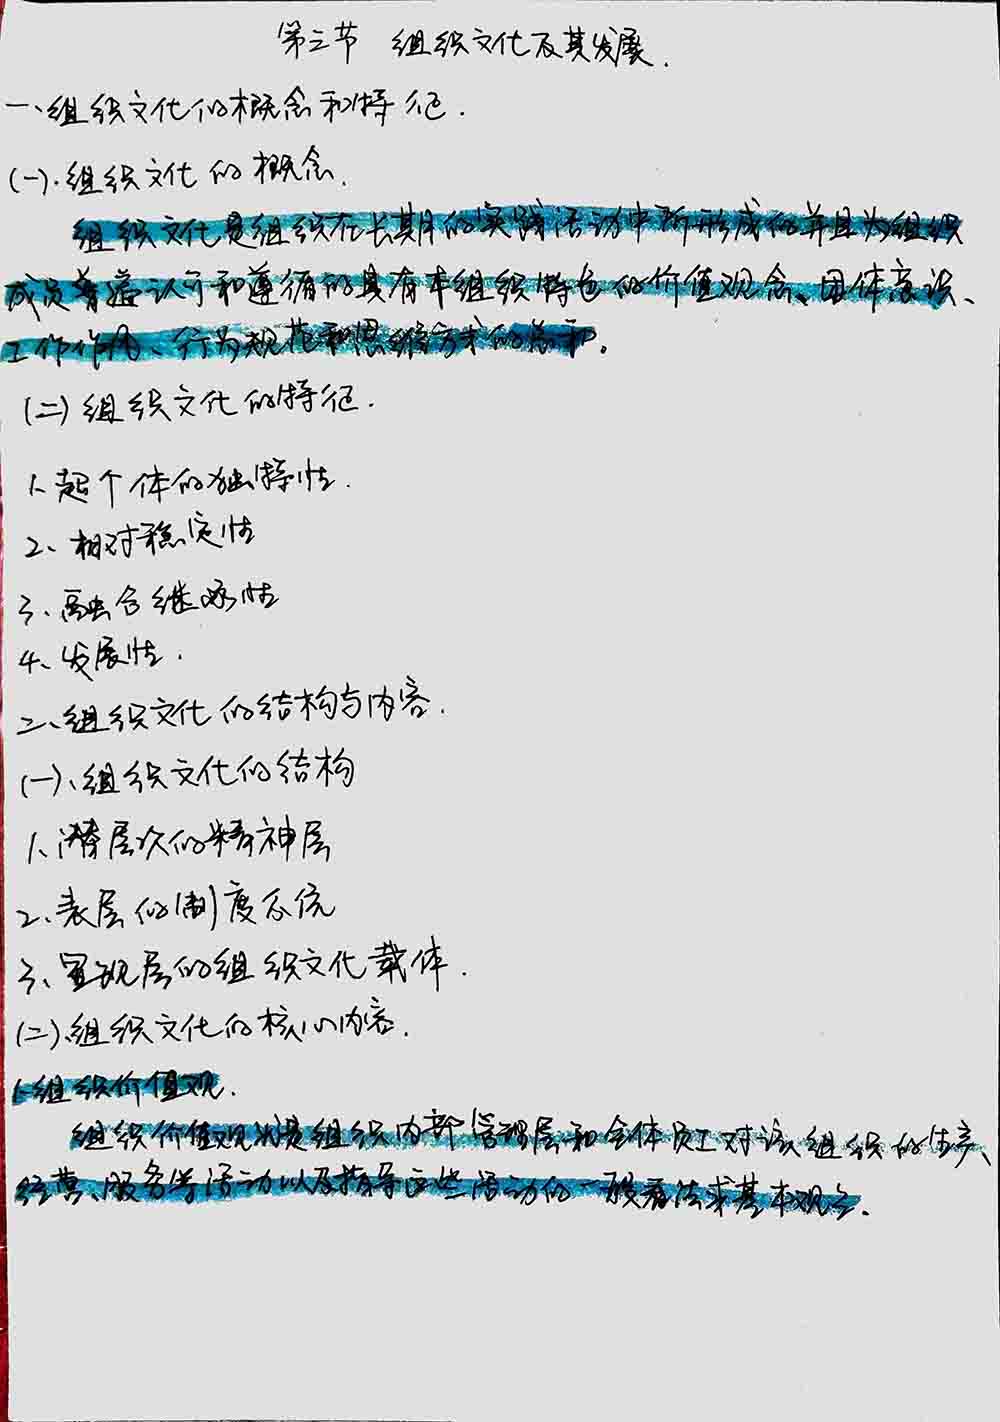 第三节 组织文化及其发展.
一、组织文化的概念和特征.
(一).组织文化的概念.
组织文化是组织在长期的实践活动中所形成的并且为组织
成员普遍认可和遵循的具有本组织特色的价值观念、团体意识、
工作作风、行为规范和思维方式的总和。
(二)组织文化的特征.
1、超个体的独特性.
2、相对稳定性
3、融合继承性
4、发展性.
二、组织文化的结构与内容.
(一)、组织文化的结构
1、潜层次的精神层
2、表层的制度系统
3、显现层的组织文化载体.
(二)、组织文化的核心内容.
1、组织价值观.
组织价值观就是组织内部管理层和全体员工对该组织的生产、
经营、服务等活动以及指导这些活动的一般看法或基本观点.